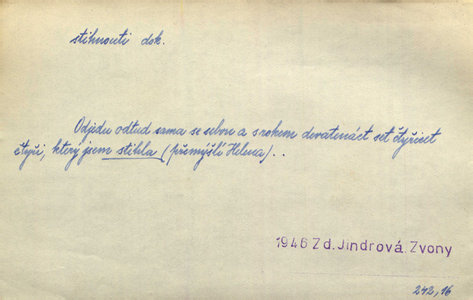 stihnouti dok.
Odjedu odtud sama se sebou a s rokem devatenáct set čtyřicet
čtyři, který jsem stihla (přemýšlí Helena)..
1946 Zd. Jindrová. Zvony
242,16